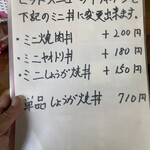 下記のミニ丼に変更出来ます。
・ミニ焼肉丼 +200円
・ミニヤキトリ丼 +180円
・ミニしょうが焼丼 +150円
単品しょうが焼丼 710円